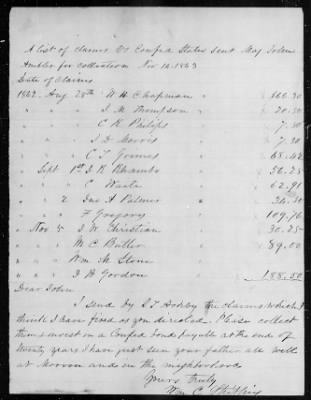 A list of claims Vs Confed States sent Maj John
Ambler for collection Nov 12. 1863
Date of Claims
1862. Aug 28th W H Chapman " 166.30
" " " J. M. Thompson " 20.30
" " " C R Philips " 7.30
" " " J D Morris " 7.30
" " " C T " 68.42
" Sept 1st J R " 50.25
" " " C " 62.91
" " 2 Jno A Palmer " 26.30
" " " F Gregory " 109.76
" Nov 5 J W Christian " 30.25
" " " M C Butler " 89.00
" " " Wm M Stone "
" " " J B Gordon 188.00
Dear John
I send by S T the claims which I
think I have fixed as you directed. Please collect
them & invest in a Confed bond payable at the end of
twenty years I have just seen your father all well
at Morven and in the neighborhood
Yours truly
Wm C